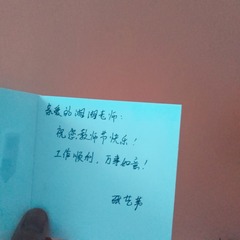 亲爱的湘湘老师：
祝您教师节快乐！
工作顺利，万事如意！